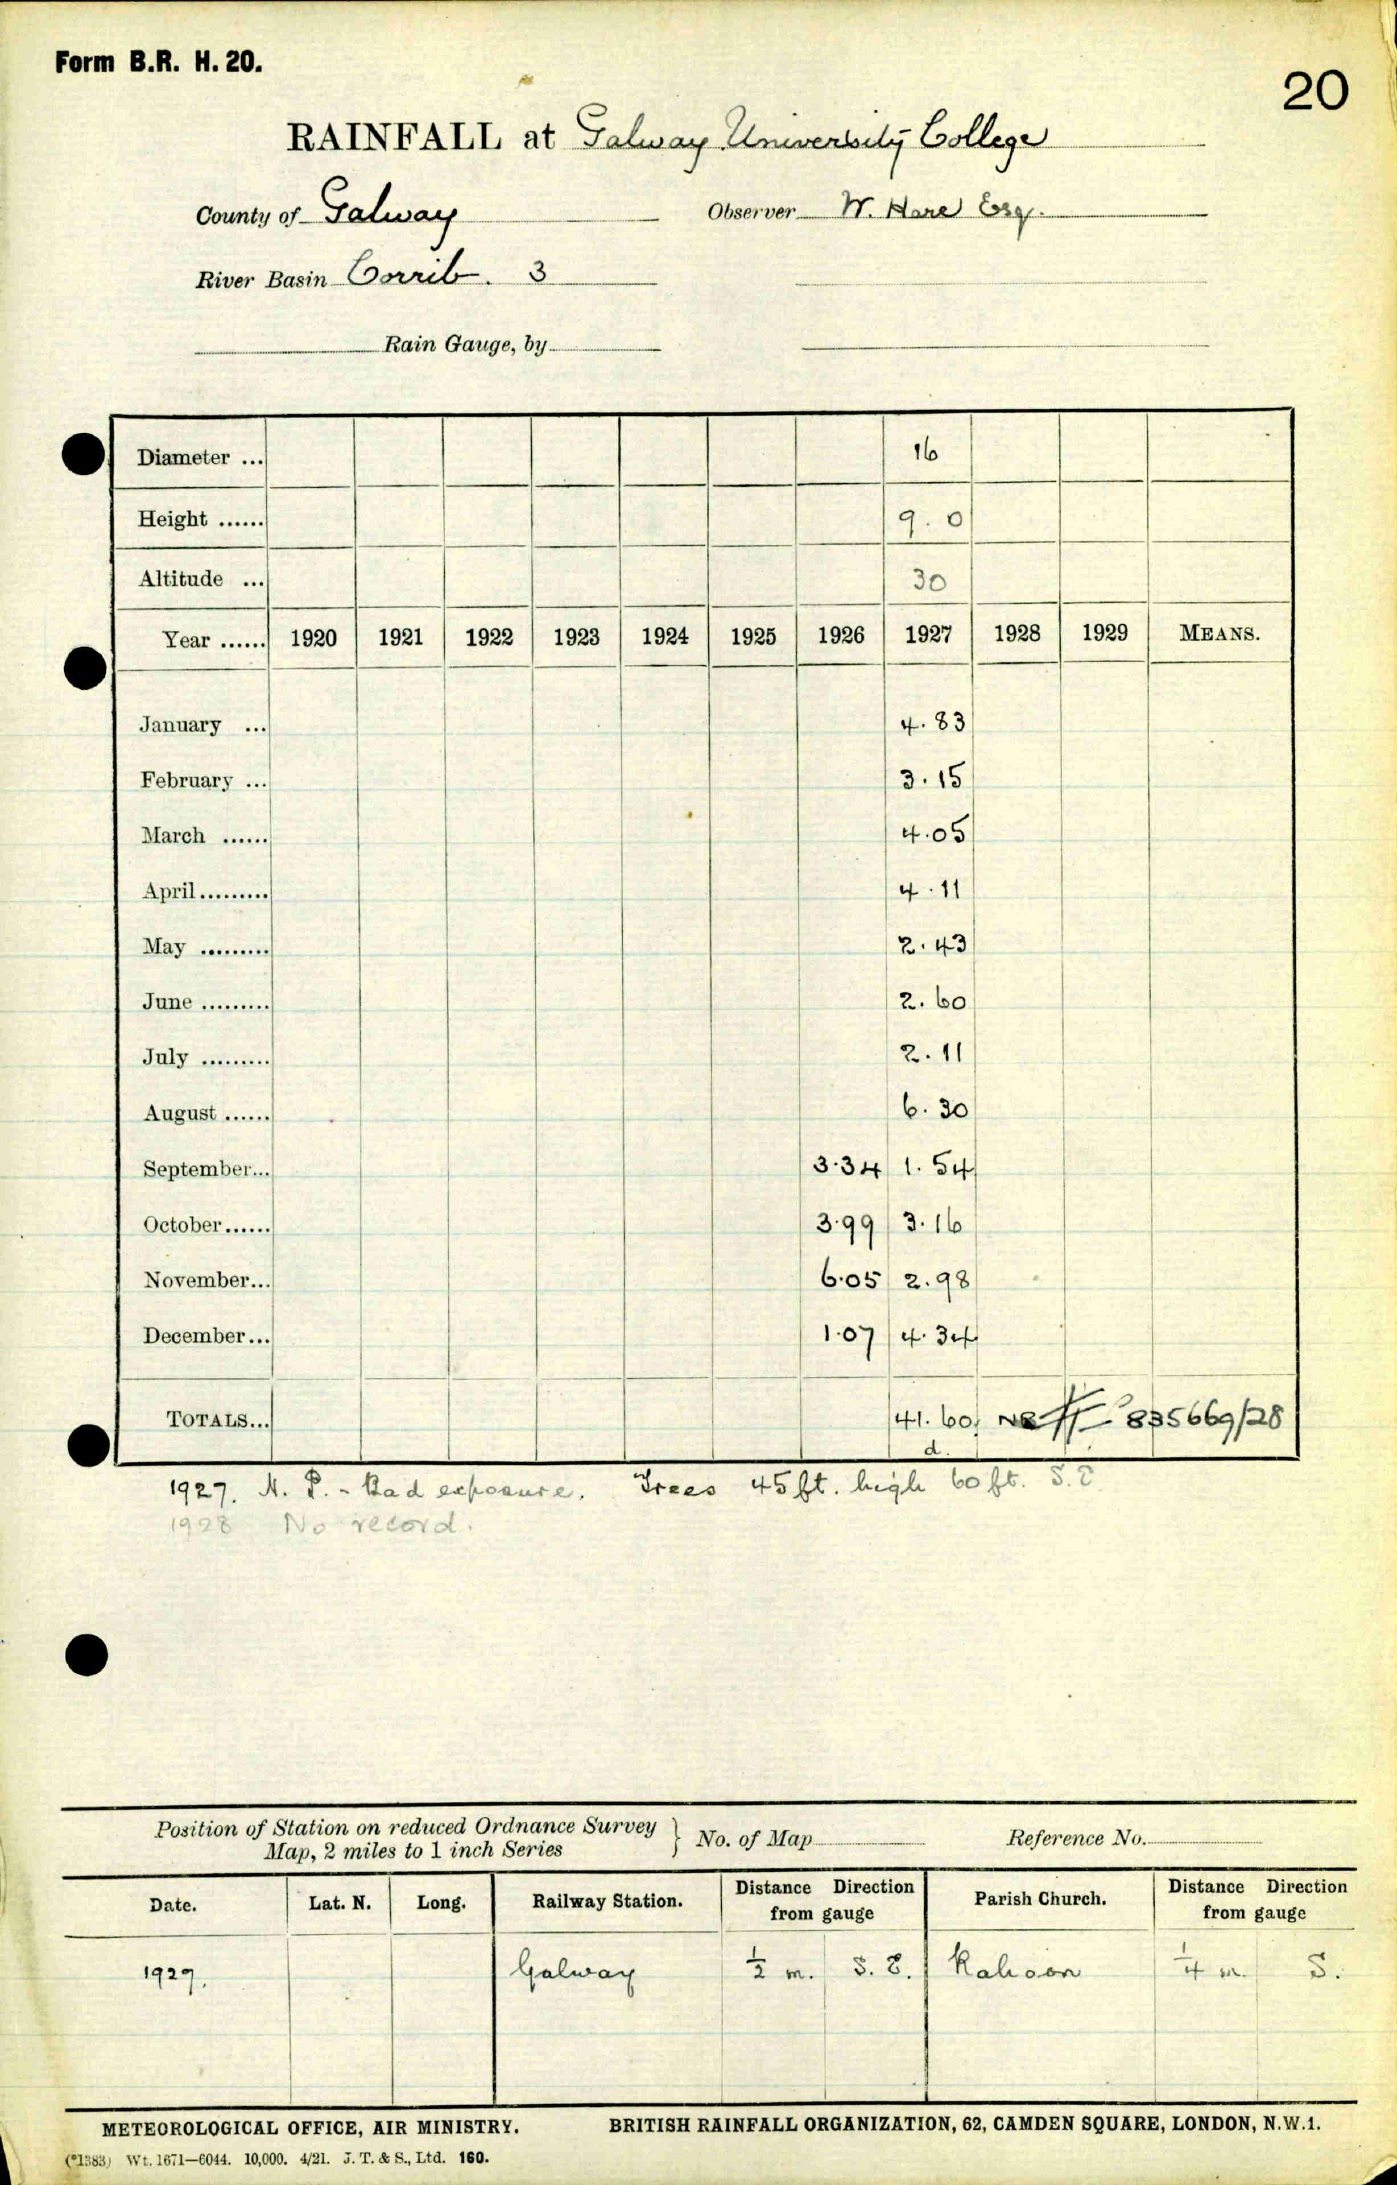 Form B.R. H. 20.
20
RAINFALL at Galway University College
County of Galway Observer W. Hare Esq.
River Basin Corrib. 3
Rain Gauge, by
Diameter ... 16
Height ...... 9.0
Altitude ... 30
Year ...... 1920 1921 1922 1923 1924 1925 1926 1927 1928 1929 MEANS.
January ... 4.83
February ... 3.15
March ...... 4.05
April ......... 4.11
May ......... 2.43
June ......... 2.60
July ......... 2.11
August ...... 6.30
September... 3.34 1.54
October...... 3.99 3.16
November... 6.05 2.98
December... 1.07 4.34
TOTALS... 41.60 835669/28
d.
1927. N. P. - Bad exposure. Trees 45ft. high 60ft. S.E
1928 No record.
Position of Station on reduced Ordnance Survey
Map, 2 miles to 1 inch Series } No. of Map Reference No.
Date. Lat. N. Long. Railway Station. Distance Direction from gauge Parish Church. Distance Direction from gauge
1927. Galway ½ m. S. E. Rahoon ¼ m. S.
METEOROLOGICAL OFFICE, AIR MINISTRY. BRITISH RAINFALL ORGANIZATION, 62, CAMDEN SQUARE, LONDON, N.W.1.
(*1383) Wt. 1671—6044. 10,000. 4/21. J. T. & S., Ltd. 160.